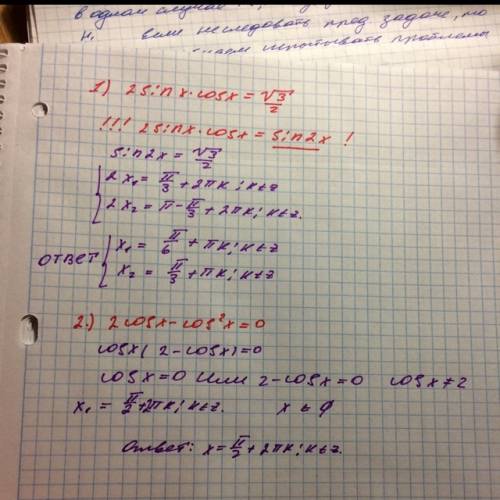 в одном случае
н, если исследовать пред. задаче, то
испытывать проблемы
1) 2 sin x · cos x = √3/2
!!! 2 sin x · cos x = sin 2x !
sin 2x = √3/2
{ 2x₁ = π/3 + 2πk; k∈z
2x₂ = π - π/3 + 2πk; k∈z.
ответ { x₁ = π/6 + πk; k∈z
x₂ = π/3 + πk; k∈z
2.) 2 cos x - cos²x = 0
cos x (2 - cos x) = 0
cos x = 0 или 2 - cos x = 0 cos x ≠ 2
x₁ = π/2 + 2πk; k∈z. x ∈ ∅
Ответ: x = π/2 + 2πk; k∈z.